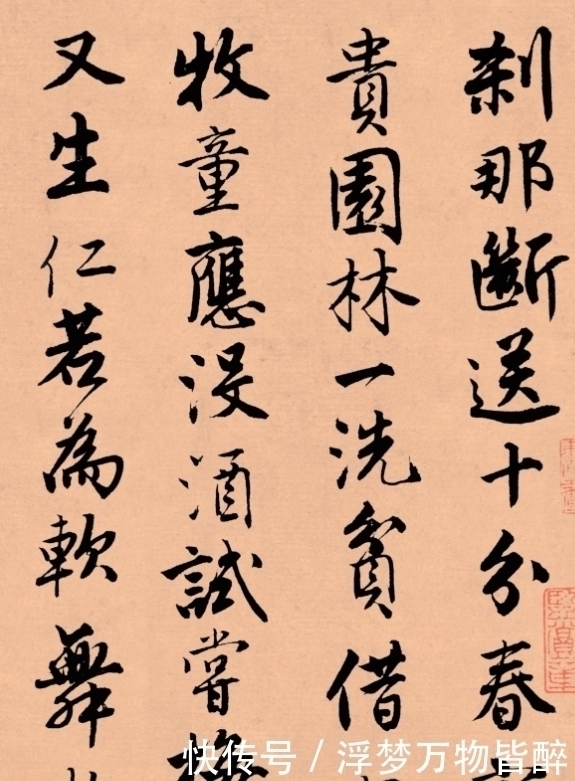 刹那斷送十分春
貴園林一洗貧借
牧童應没酒試嘗
又生仁若為軟舞
快传号 / 浮梦万物皆醉